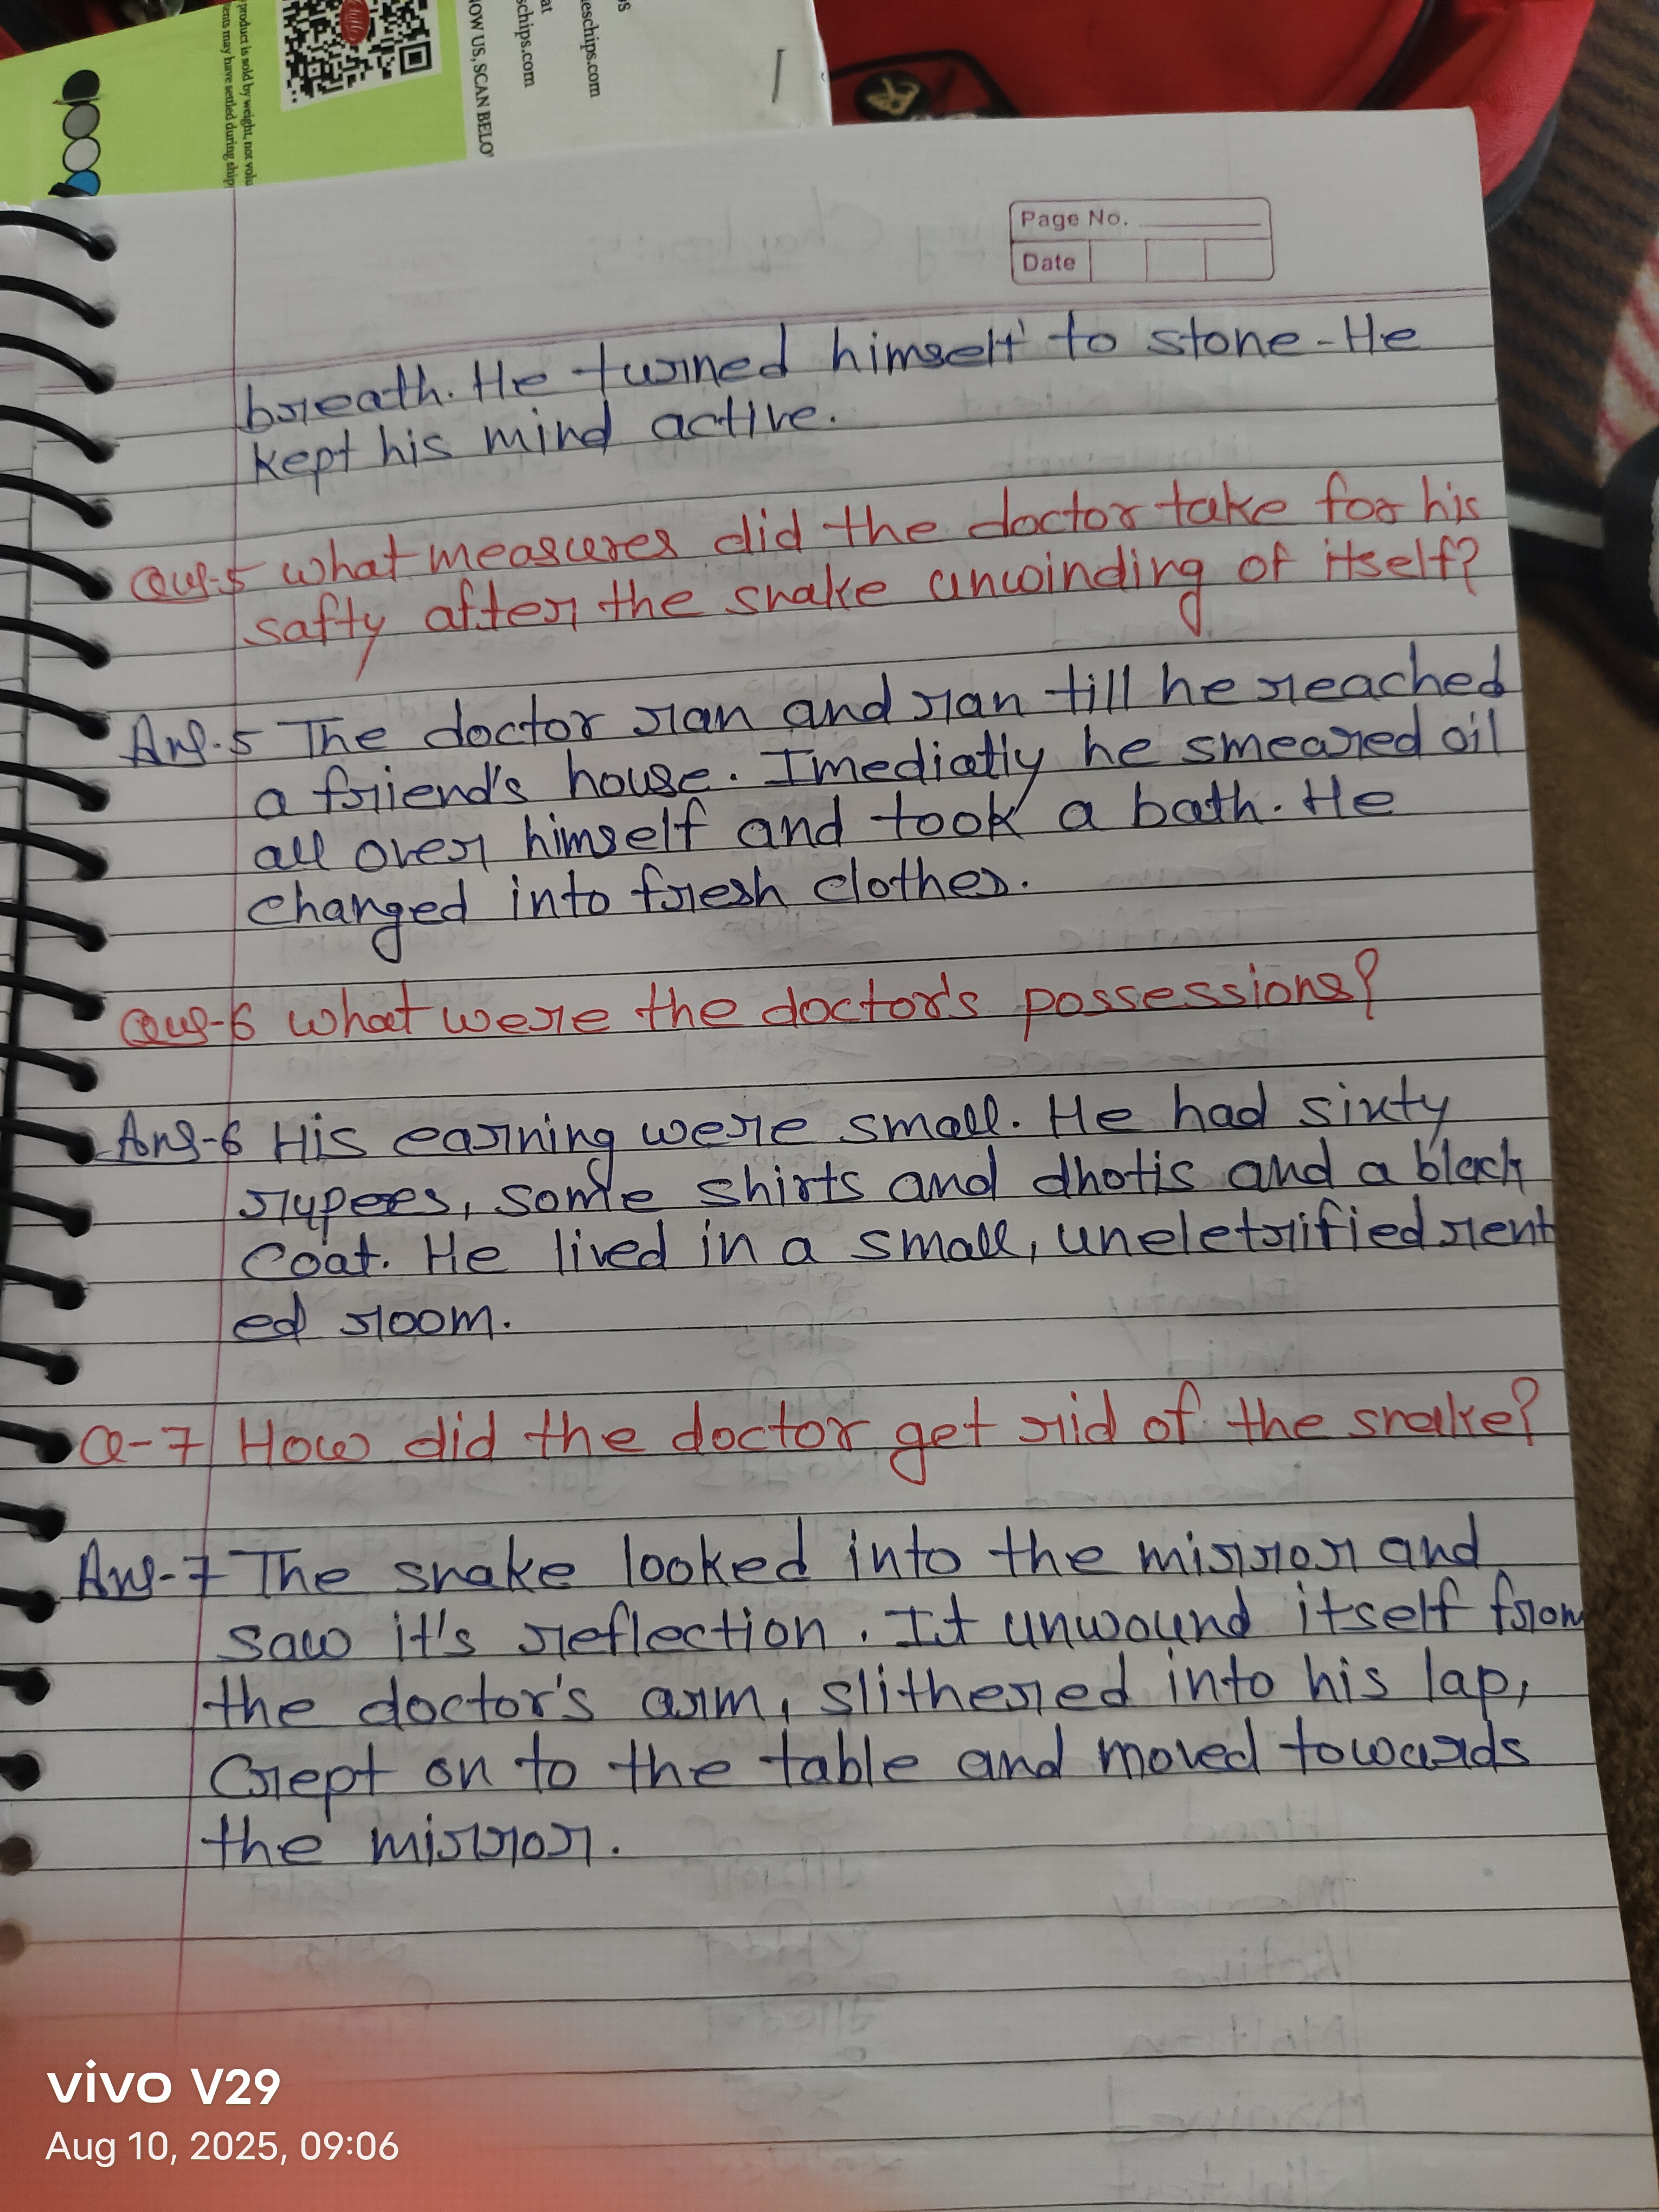 product is sold by weight, not volu
ents may have settled during ship
OW US, SCAN BELO
at
schips.com
eschips.com
Page No.
Date
breath. He turned himself to stone - He
kept his mind active.
Ques-5 what measures did the doctor take for his
safty after the snake unwinding of itself?
Ans.5 The doctor ran and ran till he reached
a friend's house. Imediatly he smeared oil
all over himself and took a bath. He
changed into fresh clothes.
Ques-6 what were the doctor's possessions?
Ans-6 His earning were small. He had sixty
rupees, some shirts and dhotis and a black
coat. He lived in a small, uneletrified rent
ed room.
Q-7 How did the doctor get rid of the snake?
Ans-7 The snake looked into the mirror and
saw it's reflection. It unwound itself from
the doctor's arm, slithered into his lap,
crept on to the table and moved towards
the mirror.
vivo V29
Aug 10, 2025, 09:06